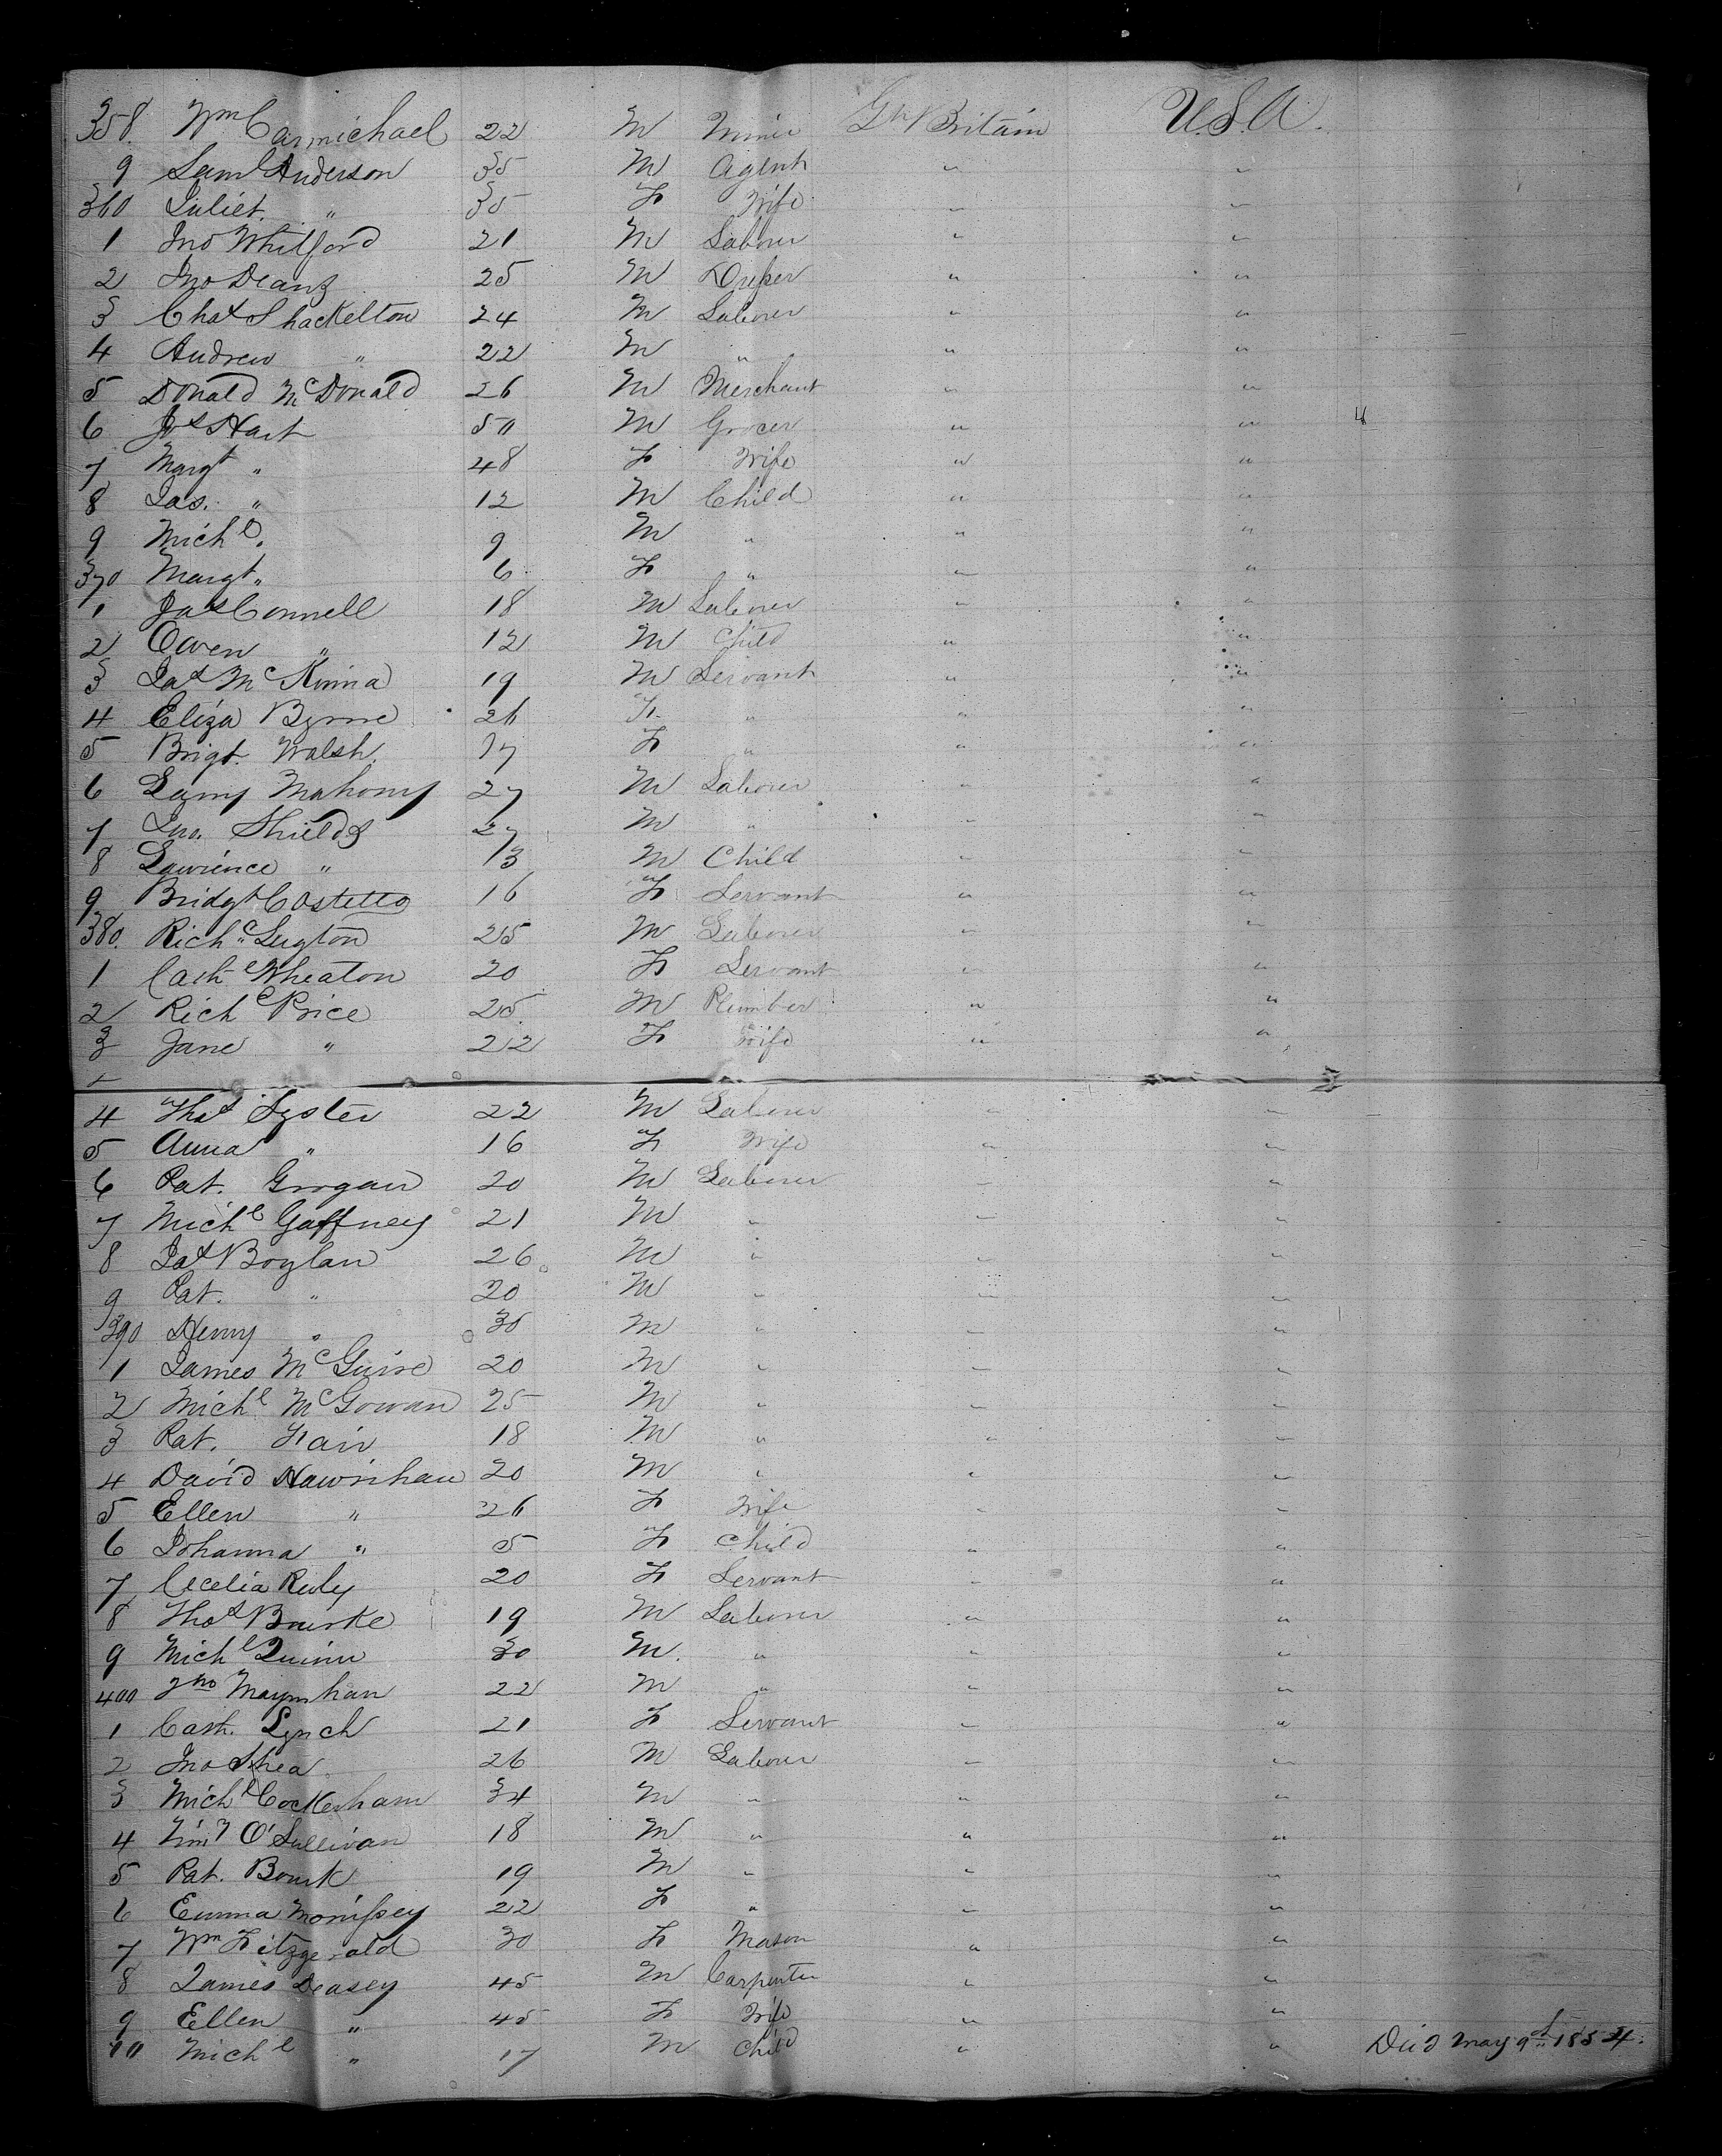 358. Wm Carmichael 22 M Miner Gt Britain U.S.A.
9 Saml Anderson 35 M Agent " "
360 Juliet. " 35 F Wife " "
1 Jno Whitford 21 M Laborer " "
2 Jno Deans 25 M Dresser " "
3 Chas Shackelton 24 M Laborer " "
4 Andrew " 22 M " " "
5 Donald McDonald 26 M Merchant " "
6 Jas Hart 50 M Grocer " "
7 Margt " 48 F Wife " "
8 Jas. " 12 M Child " "
9 Michl. 9 M " " "
370 Margt " 6 F " " "
1 Jas Connell 18 M Laborer " "
2 Owen " 12 M Child " "
3 Jas McKinna 19 M Servant " "
4 Eliza Byrne 26 F " " "
5 Brigt. Walsh. 17 F " " "
6 Mahony 27 M Laborer " "
7 Jno. Shields 27 M " " "
8 Lawrence " 13 M Child " "
9 Bridgt Costello 16 F Servant " "
380. Richd Lugton 25 M Laborer " "
1 Cath Wheaton 20 F Servant " "
2 Richd Price 25 M Plumber " "
3 Jane " 22 F Wife " "
4 Thos Lyster 22 M Laborer " "
5 Anna " 16 F Wife " "
6 Pat. Grogan 20 M Laborer " "
7 Michl Gaffney 21 M " " "
8 Jas Boylan 26 M " " "
9 Pat. " 20 M " " "
390 Henry " 30 M " " "
1 James McGuire 20 M " " "
2 Michl McGowan 25 M " " "
3 Pat. Fair 18 M " " "
4 David Hawrihan 20 M " " "
5 Ellen " 26 F Wife " "
6 Johanna " 5 F Child " "
7 Cecelia Realy 20 F Servant " "
8 Thos Bourke 19 M Laborer " "
9 Michl Quinn 30 M. " " "
400 Jno Maynihan 22 M " " "
1 Cath. Lynch 21 F Servant " "
2 Jno Shea 26 M Laborer " "
3 Michl Cockerham 34 M " " "
4 Timy O'Sullivan 18 M " " "
5 Pat. Bourk 19 M " " "
6 Emma Morrissey 22 F " " "
7 Wm Fitzgerald 30 F Mason " "
8 James Deasey 45 M Carpenter " "
9 Ellen " 45 F Wife " "
10 Michl " 17 M Child " " Died May 9th 1854.